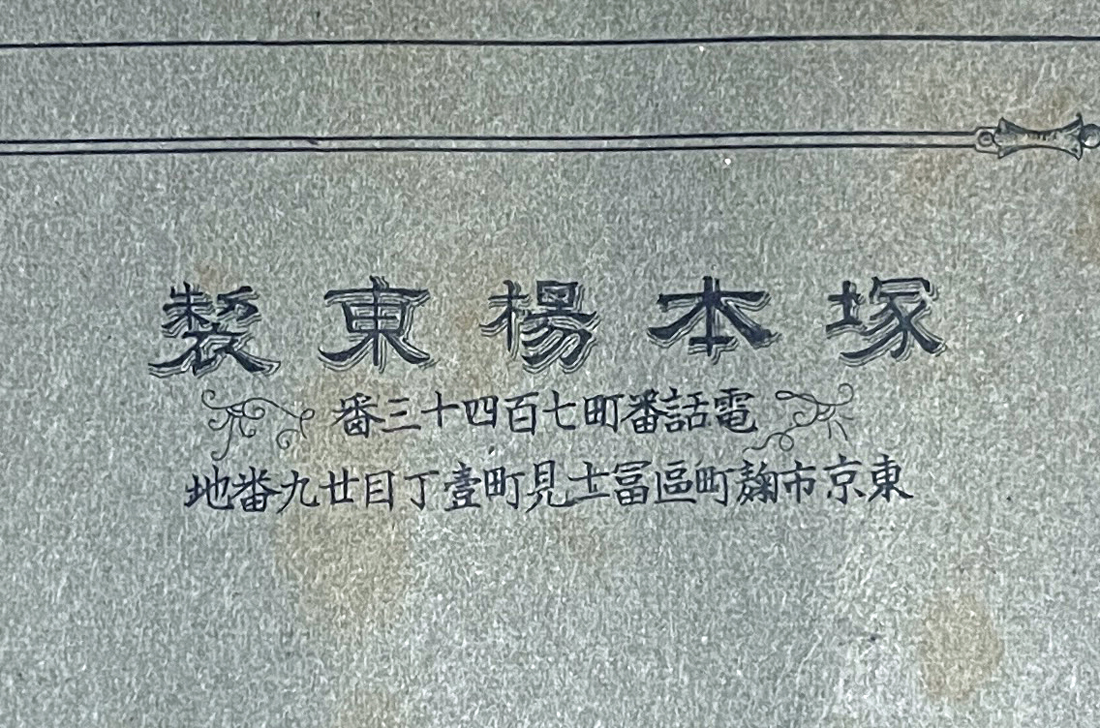 塚本楊東製
電話番町七百四十三番
東京市麹町區冨士見町壹丁目廿九番地